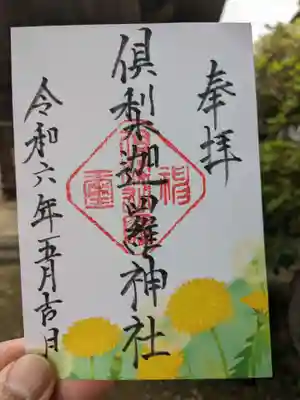 奉拝
俱利伽羅神社
令和六年五月吉日